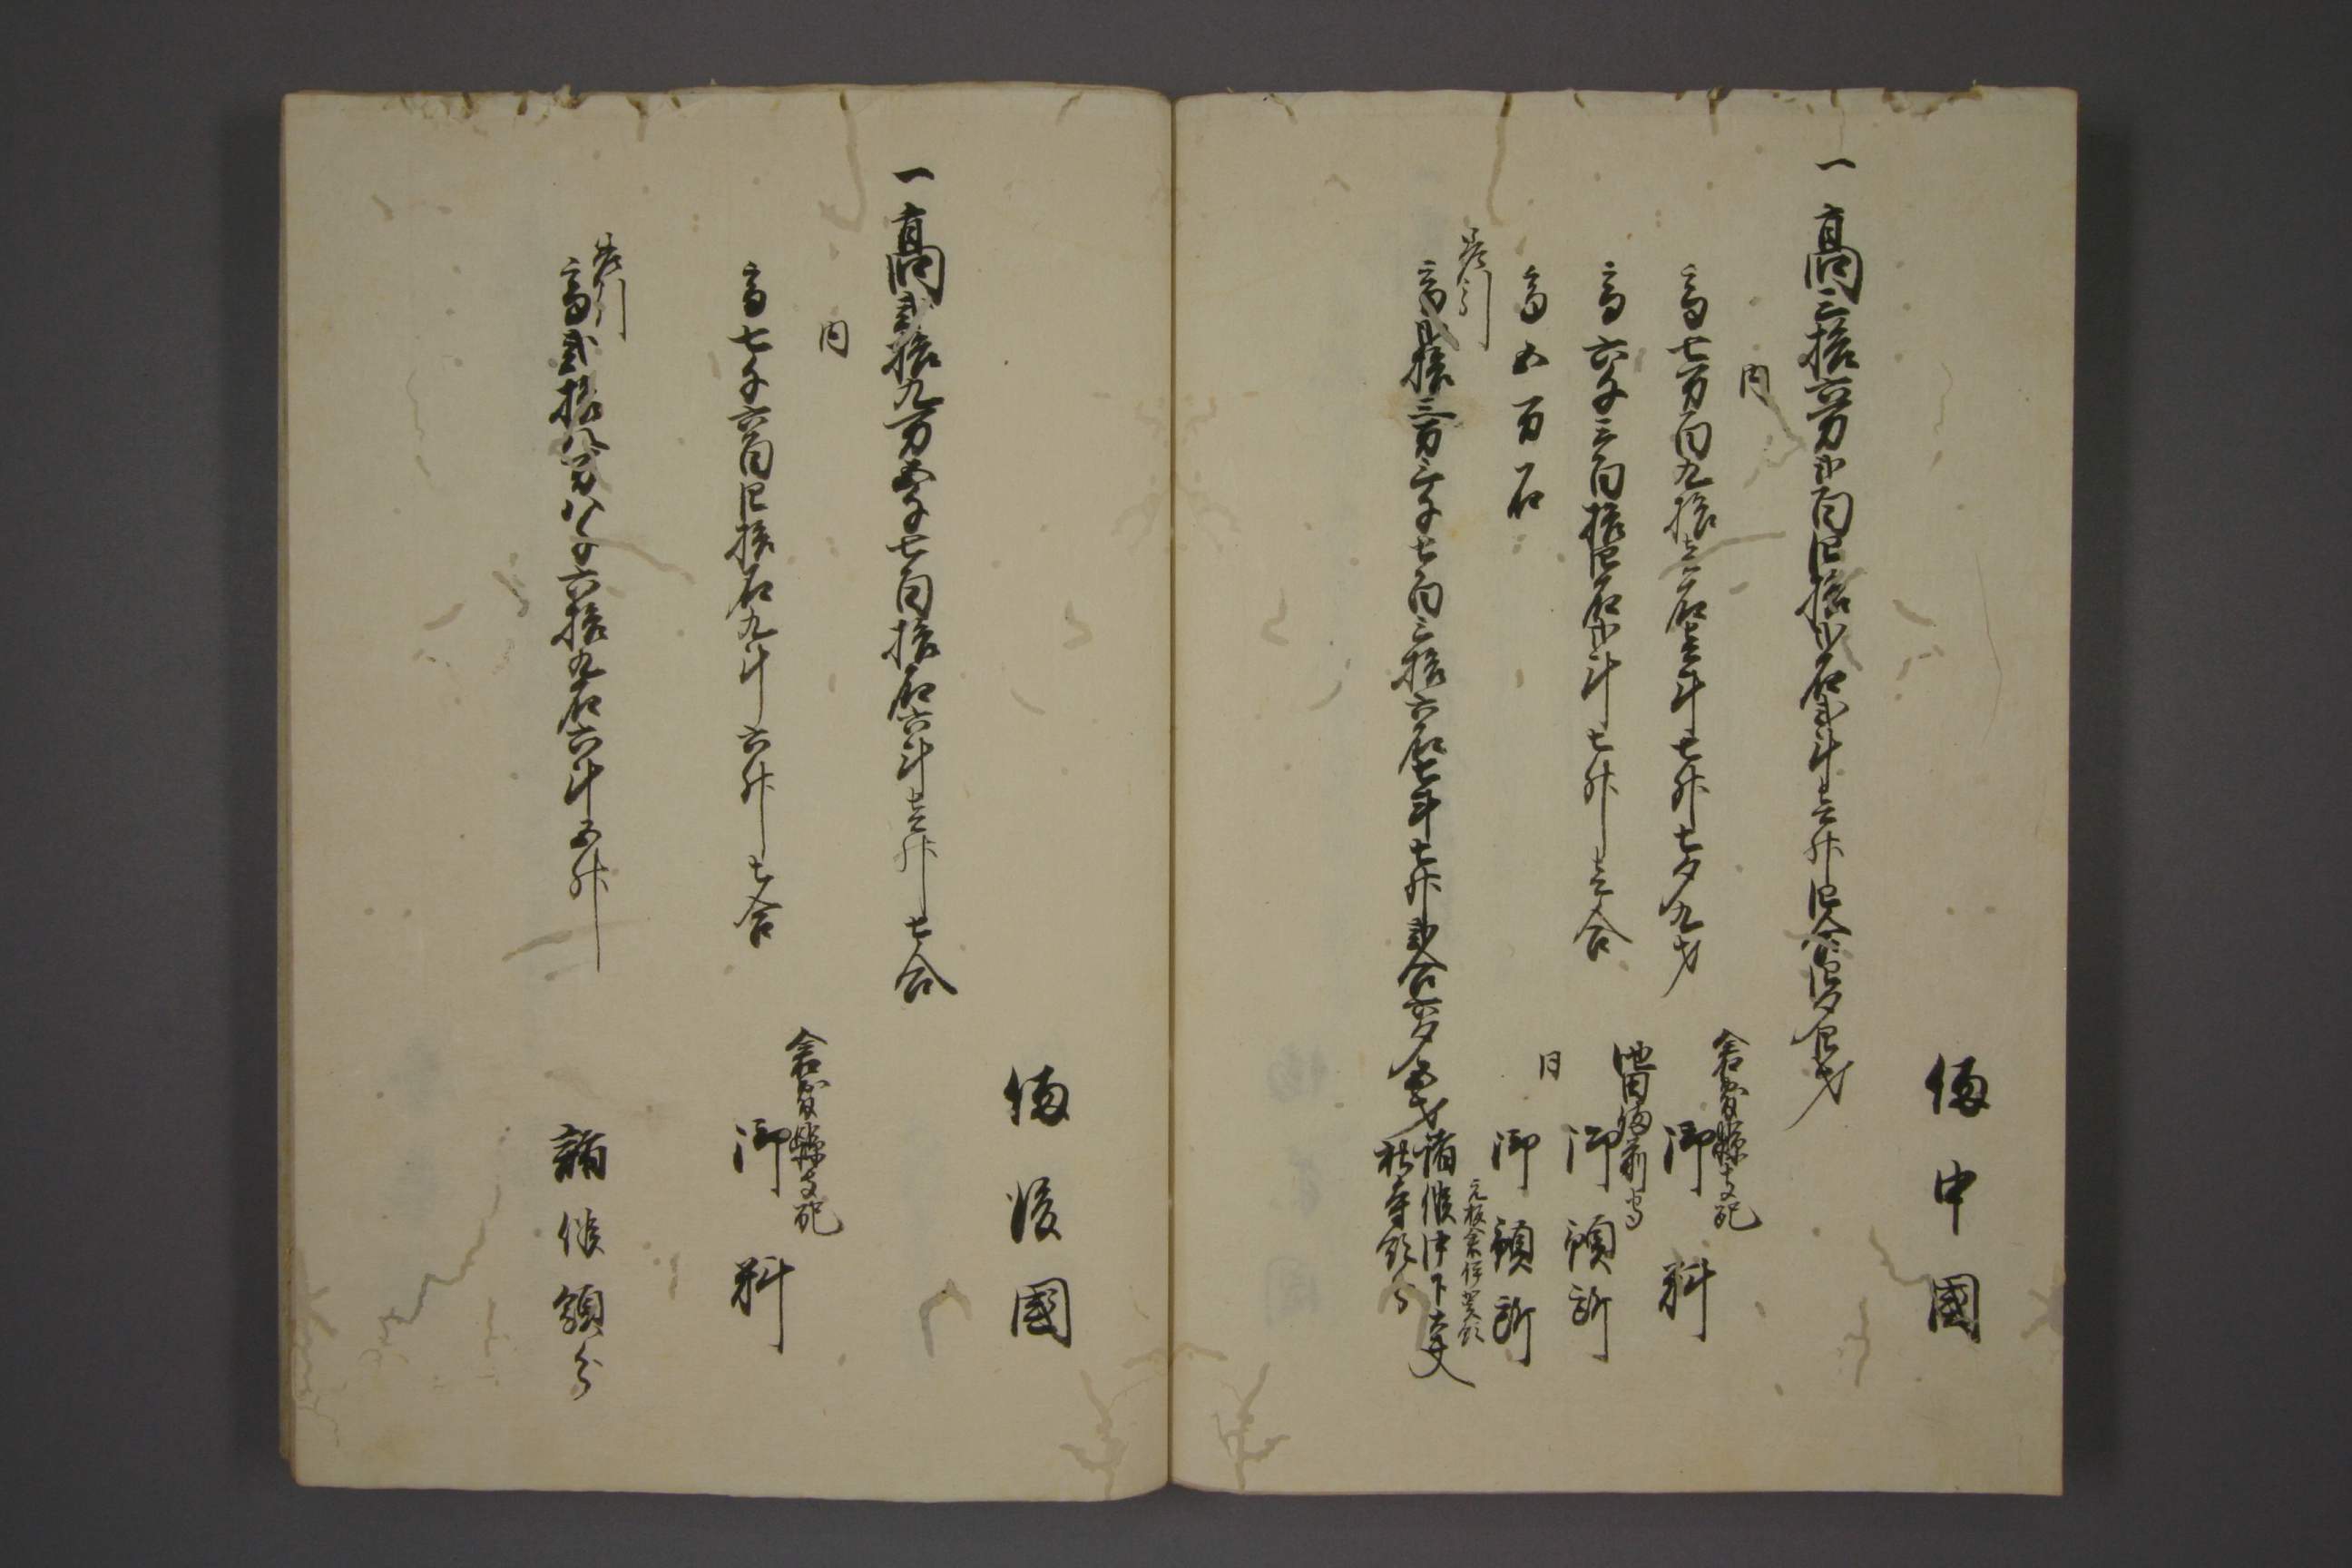 備中國
一高三拾六万弐百四拾弐石弐斗壱升四合四夕四才
内
高七万百九拾壱石壱斗七升七夕九才
倉敷縣支配
御料
高六千三百拾四石弐斗七升壱合
池田備前守
御預所
高五百石
同
御預所
差引
高弐拾三万三千七百三拾六石七斗七升弐合六夕五才
諸侯中下大夫
社寺領分
備後國
一高弐拾九万五千七百拾石六斗壱升七合
内
高七千六百四拾石九斗六升七合
倉敷縣支配
御料
差引
高弐拾八万八千六拾九石六斗五升
諸侯領分